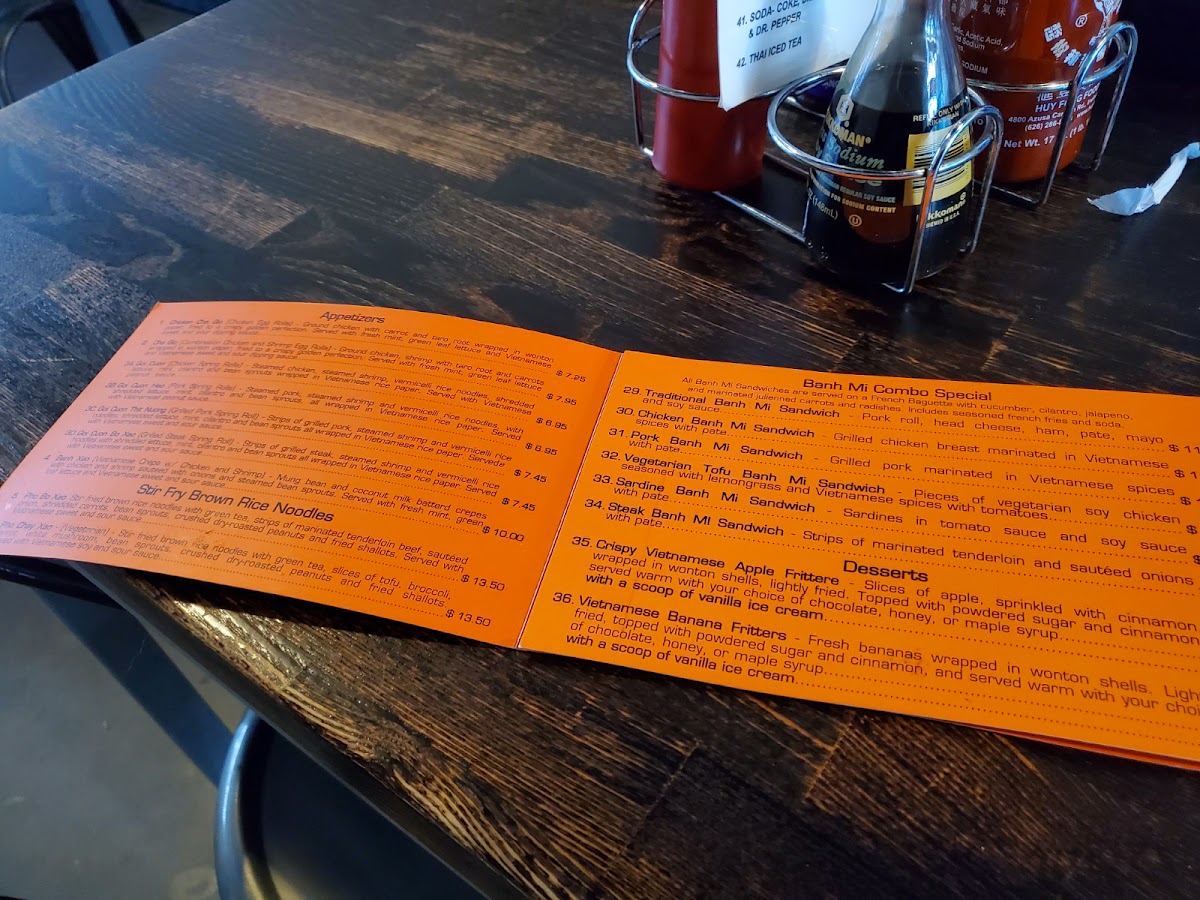 41. SODA- COKE,
& DR. PEPPER
42. THAI ICED TEA
Acetic Acid
SODIUM
HUY F NG FOO
4800 Azusa Ca
(626) 286-
Net. Wt. 17
KKOMAN®
odium
REGULAR SOY SAUCE
FOR SODIUM CONTENT
(148mL)
kkoman
Appetizers
1. Chicken Cha Gio (Chicken Egg Rolls) - Ground chicken with carrot and taro root wrapped in wonton
paper, fried to a crispy golden perfection. Served with fresh mint, green leaf lettuce and Vietnamese
$ 7.25
2. Cha Gio (Combination Chicken and Shrimp Egg Rolls) - Ground chicken, shrimp with taro root and carrots
to a crispy golden perfection. Served with fresh mint, green leaf lettuce
$ 7.95
(Chicken Spring Roll) - Steamed chicken, steamed shrimp, vermicelli rice noodles, shredded
bean sprouts wrapped in Vietnamese rice paper. Served with Vietnamese
$ 6.95
3B. Goi Cuon Heo (Pork Spring Roll) - Steamed pork, steamed shrimp and vermicelli rice noodles, with
cilantro and bean sprouts, all wrapped in Vietnamese rice paper. Served
$ 6.95
3C. Goi Cuon Thit Nuong (Grilled Pork Spring Roll) - Strips of grilled pork, steamed shrimp and vermicelli rice
cilantro and bean sprouts all wrapped in Vietnamese rice paper. Served
$ 7.45
3D. Goi Cuon Bo Xao (Grilled Steak Spring Roll) - Strips of grilled steak, steamed shrimp and vermicelli rice
noodles with shredded cilantro and bean sprouts all wrapped in Vietnamese rice paper. Served
$ 7.45
4. Banh Xeo (Vietnamese Crepe w/ Chicken and Shrimp) - Mung bean and coconut milk batterd crepes
with chicken and shrimp and steamed bean sprouts. Served with fresh mint, green
$ 10.00
Stir Fry Brown Rice Noodles
5. Pho Bo Xao- Stir fried brown rice noodles with green tea, strips of marinated tenderloin beef, sautéed
shredded carrots, bean sprouts, crushed dry-roasted peanuts and fried shallots. Served with
soup sauce
$ 13.50
Pho Chay Xao - (Vegetarian) - Stir fried brown rice noodles with green tea, slices of tofu, broccoli,
white mushroom, bean sprouts, crushed dry-roasted peanuts and fried shallots,
soy sauce
$ 13.50
Banh Mi Combo Special
All Banh Mi Sandwiches are served on a French Baguette with cucumber, cilantro, jalapeno,
and marinated julienned carrots and radishes. Includes seasoned french fries and soda.
29. Traditional Banh Mi Sandwich - Pork roll, head cheese, ham, pate, mayo
and soy sauce $ 11
30. Chicken Banh Mi Sandwich - Grilled chicken breast marinated in Vietnamese
spices with pate $ 1
31. Pork Banh Mi Sandwich - Grilled pork marinated in Vietnamese spices
with pate $
32. Vegetarian Tofu Banh Mi Sandwich - Pieces of vegetarian soy chicken
seasoned with lemongrass and Vietnamese spices with tomatoes $
33. Sardine Banh Mi Sandwich - Sardines in tomato sauce and soy sauce
with pate $
34. Steak Banh MI Sandwich - Strips of marinated tenderloin and sautéed onions
with pate
Desserts
35. Crispy Vietnamese Apple Frittere - Slices of apple, sprinkled with cinnamon
wrapped in wonton shells, lightly fried. Topped with powdered sugar and cinnamon
served warm with your choice of chocolate, honey, or maple syrup
with a scoop of vanilla ice cream
36. Vietnamese Banana Fritters - Fresh bananas wrapped in wonton shells. Ligh
fried, topped with powdered sugar and cinnamon, and served warm with your choi
of chocolate, honey, or maple syrup
with a scoop of vanilla ice cream